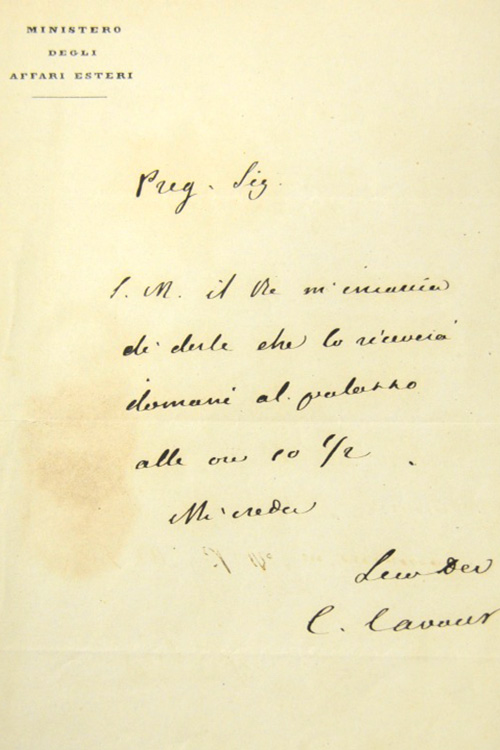 MINISTERO
DEGLI
AFFARI ESTERI
Preg. Sig.
S. M. il Re m'incarica
di dirle che lo riceverà
domani al palazzo
alle ore 10 1/2
Mi creda
Suo Dev
C. Cavour